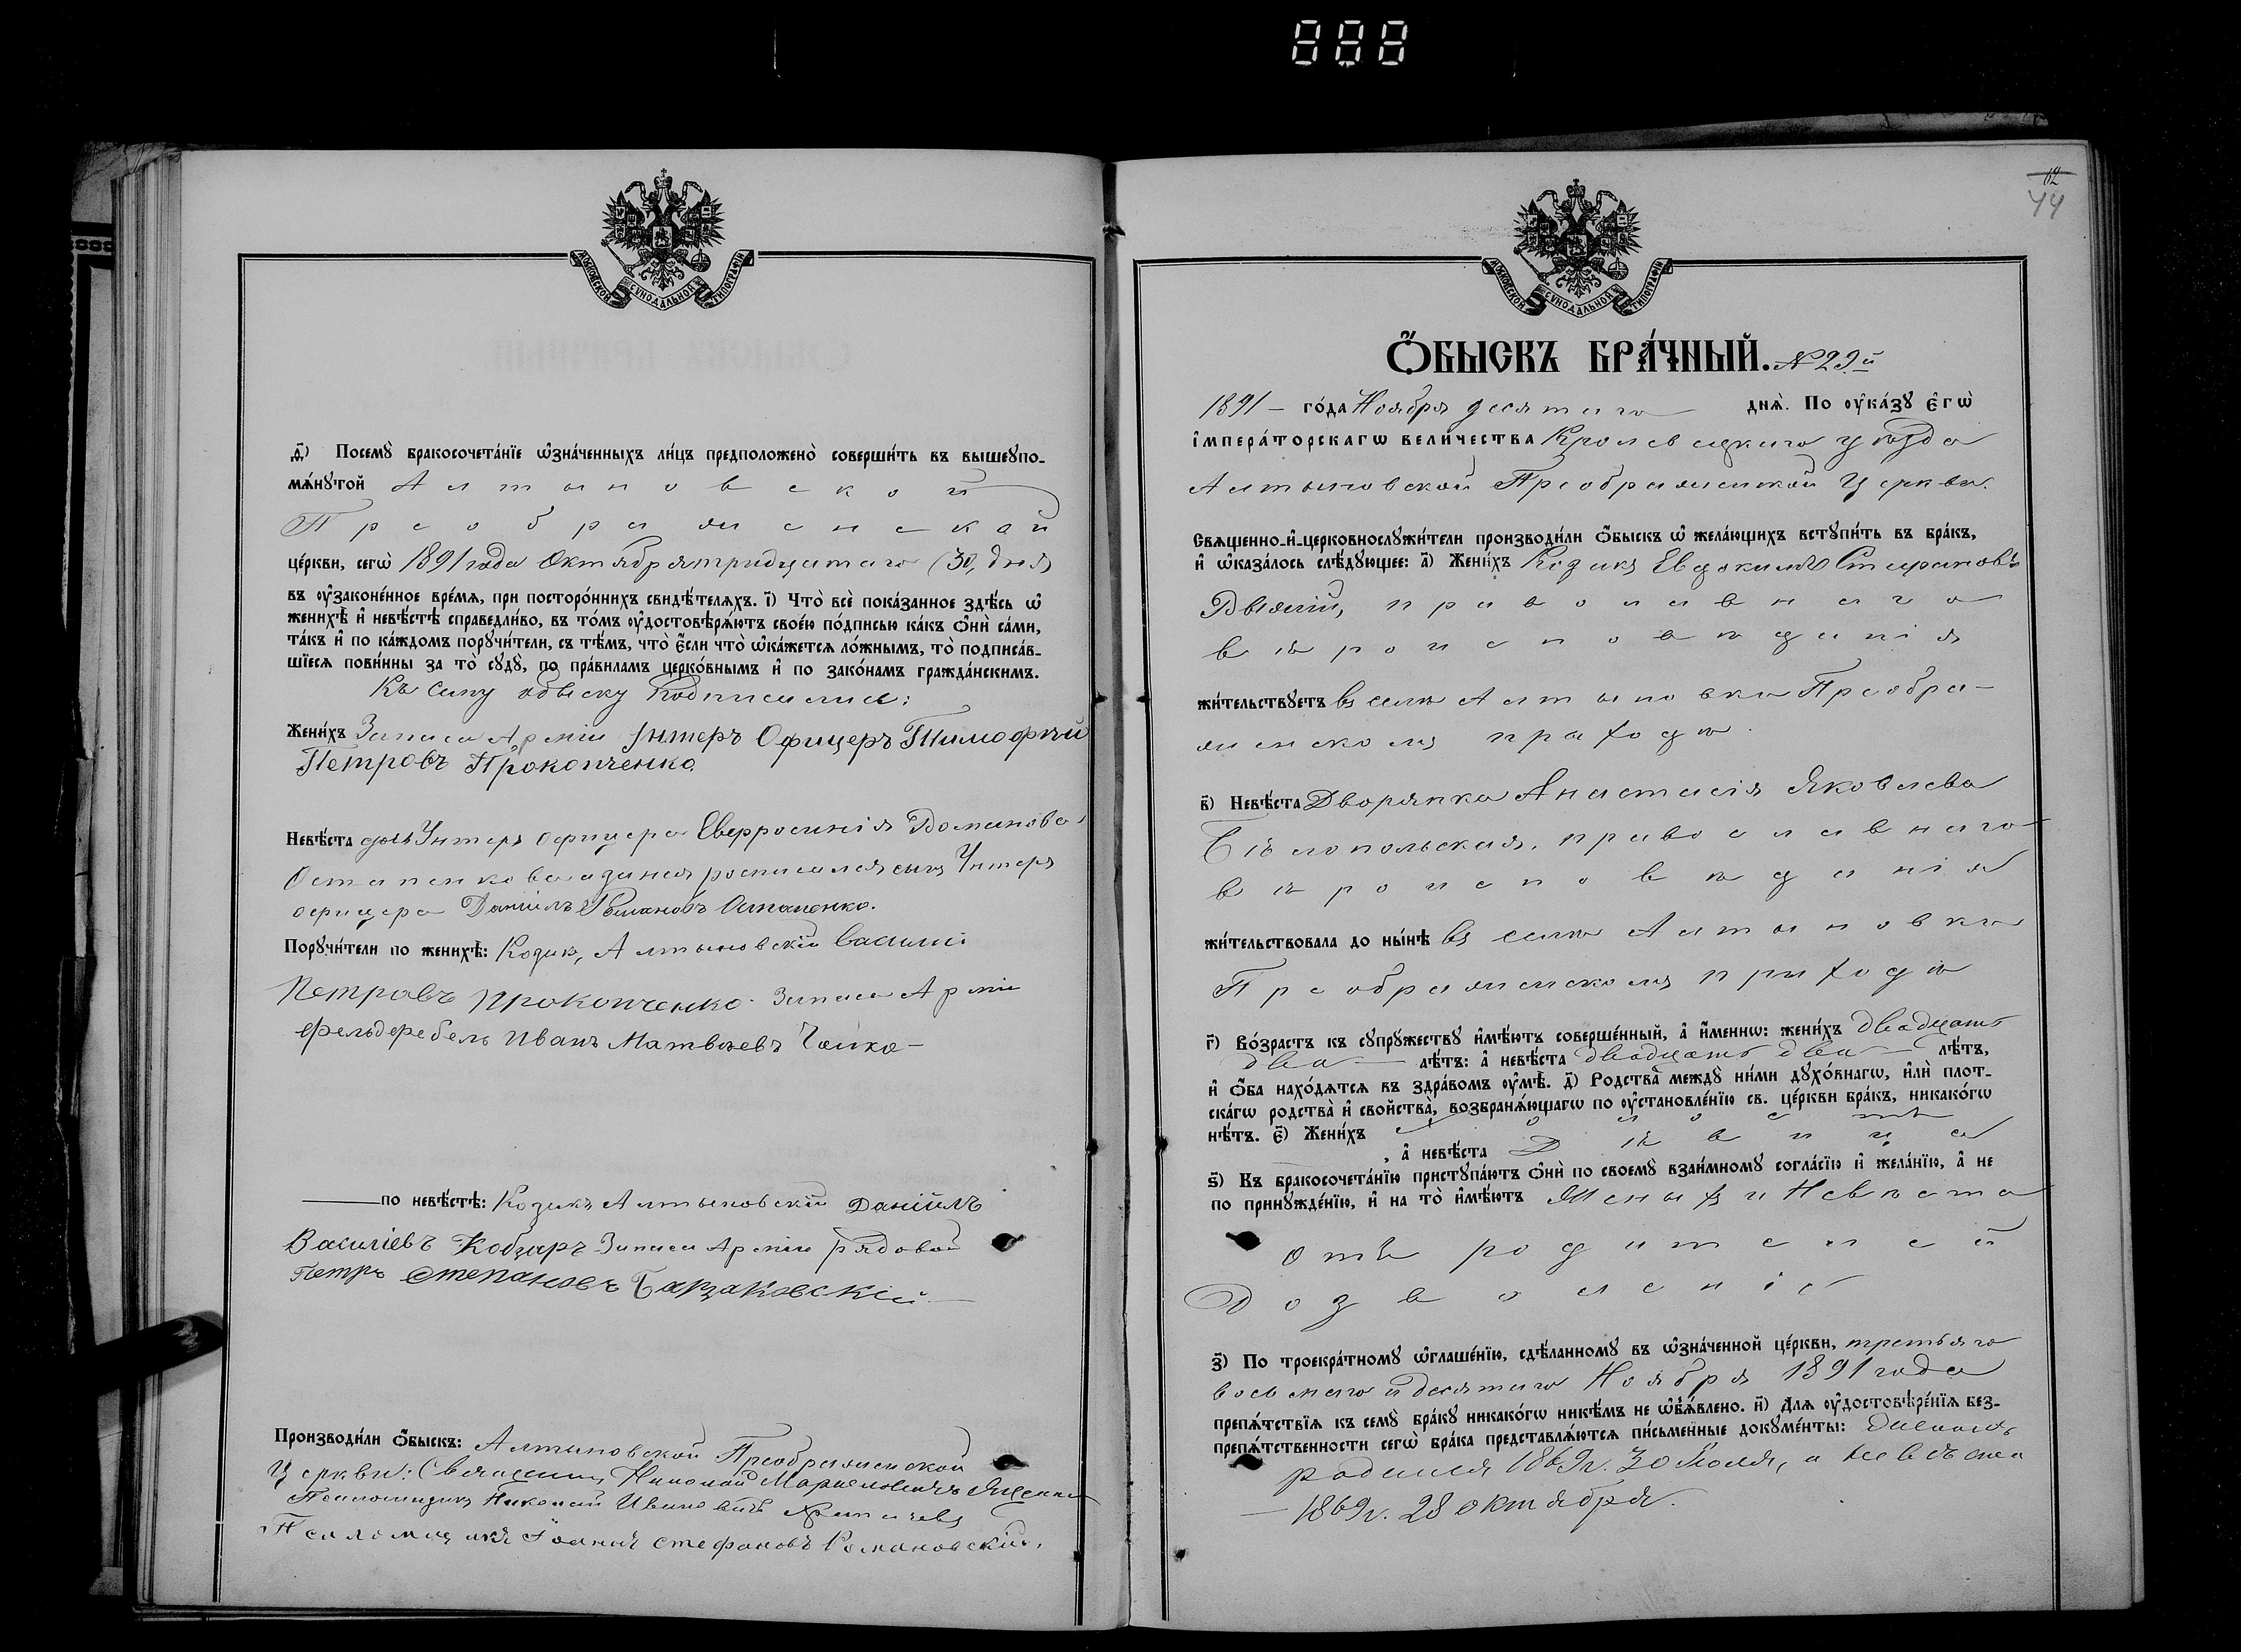 888
МОСКОВСКОЙ СѴНОДАЛЬНОЙ ТИПОГРАФІИ
д҃) Посемꙋ̀ бракосочета́нїе ѡ҆зна́ченныхъ ли́цъ предположено̀ соверши́ть въ вышеꙋпо-
мѧ́нꙋтой Алтыновской
Преображенской
це́ркви, сегѡ̀ 1891 года Октября тридцатаго (30) дня
въ ᲂу҆зако́не́нное вре́мѧ, при посторо́ннихъ свидѣ́телѧхъ. і҃) Что̀ всѐ пока́занное здѣ́сь ѡ҆
женихѣ̀ и҆ невѣ́стѣ справедли́во, въ то́мъ ᲂу҆достовѣрѧ́ютъ свое́ю по́дписью ка́къ ѻ҆нѝ са́ми,
та́къ и҆ по ка́ждомъ порꙋчи́тели, съ тѣ́мъ, что̀ є҆́сли что̀ ѡ҆ка́жетсѧ ло́жнымъ, то̀ подписа́в-
шїесѧ пови́нны за то̀ сꙋдꙋ̀, по пра́виламъ церко́внымъ и҆ по зако́намъ гражда́нскимъ.
Къ сему обыску подписались:
Жени́хъ Запаса Арміи Унтеръ Офицеръ Тимофѣй
Петровъ Прокопченко.
Невѣ́ста дочь Унтеръ Офицера Евфросинія Романова
Остапенкова а за нея росписался сынъ Унтеръ
офицера Даніилъ Романовъ Остапенко.
Порꙋчи́тели по женихѣ̀: Козакъ, Алтыновскій Василій
Петровъ Прокопченко. Запаса Арміи
фельдфебель Иванъ Матвѣевъ Чайка
по невѣ́стѣ: Козакъ Алтыновскій Даніилъ
Василіевъ Кобзаръ Запаса Арміи рядовой
Петръ Степановъ Барзаковскій
Производи́ли ѻ҆́быскъ: Алтыновской Преображенской
Церкви: Священникъ Николай
Псаломщикъ Николай Ивановичъ
Псаломщикъ Іоаннъ Стефановъ Романовскій.
12
44
МОСКОВСКОЙ СѴНОДАЛЬНОЙ ТИПОГРАФІИ
Ѻ҆́БЫСКЪ БРА́ЧНЫЙ. №29й
1891 – го́да Ноября десятаго днѧ̀. По ᲂу҆ка́зꙋ є҆гѡ̀
і҆мпера́торскагѡ вели́чества Кролевецкаго уѣзда
Алтыновской Преображенской Церкви.
Свѧщенно-и҆-церковнослꙋжи́тели производи́ли ѻ҆́быскъ ѡ҆ жела́ющихъ встꙋпи́ть въ бра́къ,
и҆ ѡ҆каза́лось слѣ́дꙋющее: а҃) Жени́хъ Козакъ Евдокимъ Стефановъ
православнаго
вѣроисповѣданія
жи́тельствꙋетъ въ селѣ Алтыновкѣ Преобра-
женскомъ приходѣ.
в҃) Невѣ́ста Дворянка Анастасія Яковлева
Бѣлопольская, православнаго
вѣроисповѣданія
жи́тельствовала до ны́нѣ въ селѣ Алтыновкѣ
Преображенскомъ приходѣ
г҃) Во́зрастъ къ сꙋпрꙋ́жествꙋ и҆мѣ́ютъ соверше́нный, а҆ и҆́меннѡ: жени́хъ двадцать
два – лѣ́тъ: а҆ невѣ́ста двадцать два – лѣ́тъ,
и҆ ѻ҆́ба нахо́дѧтсѧ въ здра́вомъ ᲂу҆мѣ̀. д҃) Родства̀ междꙋ̀ ни́ми дꙋхо́внагѡ, и҆лѝ плот-
ска́гѡ родства̀ и҆ свойства̀, возбранѧ́ющагѡ по ᲂу҆становле́нїю св. це́ркви бра́къ, никако́гѡ
нѣ́тъ. є҃) Жени́хъ холостъ
, а҆ невѣ́ста Дѣвица
ѕ҃) Къ бракосочета́нїю пристꙋпа́ютъ ѻ҆нѝ по своемꙋ̀ взаи́мномꙋ согла́сїю и҆ жела́нїю, а҆ не
по принꙋжде́нїю, и҆ на то̀ и҆мѣ́ютъ Женихъ и Невѣста
отъ родителей
Дозволеніе
з҃) По троекра́тномꙋ ѡ҆глаше́нїю, сдѣ́ланномꙋ въ ѡ҆зна́ченной це́ркви, третьяго
восьмаго и десятаго Ноября 1891 года
препѧ́тствїѧ къ семꙋ̀ бра́кꙋ никако́гѡ никѣ́мъ не ѡ҆б̾ѧ́влено. и҃) Длѧ ᲂу҆достовѣре́нїѧ без-
препѧ́тственности сегѡ̀ бра́ка представлѧ́ютсѧ пи́сьменные докꙋме́нты: Женихъ
родился 1869 г. 30 Іюля, а невѣста
– 1869 г. 28 октября.